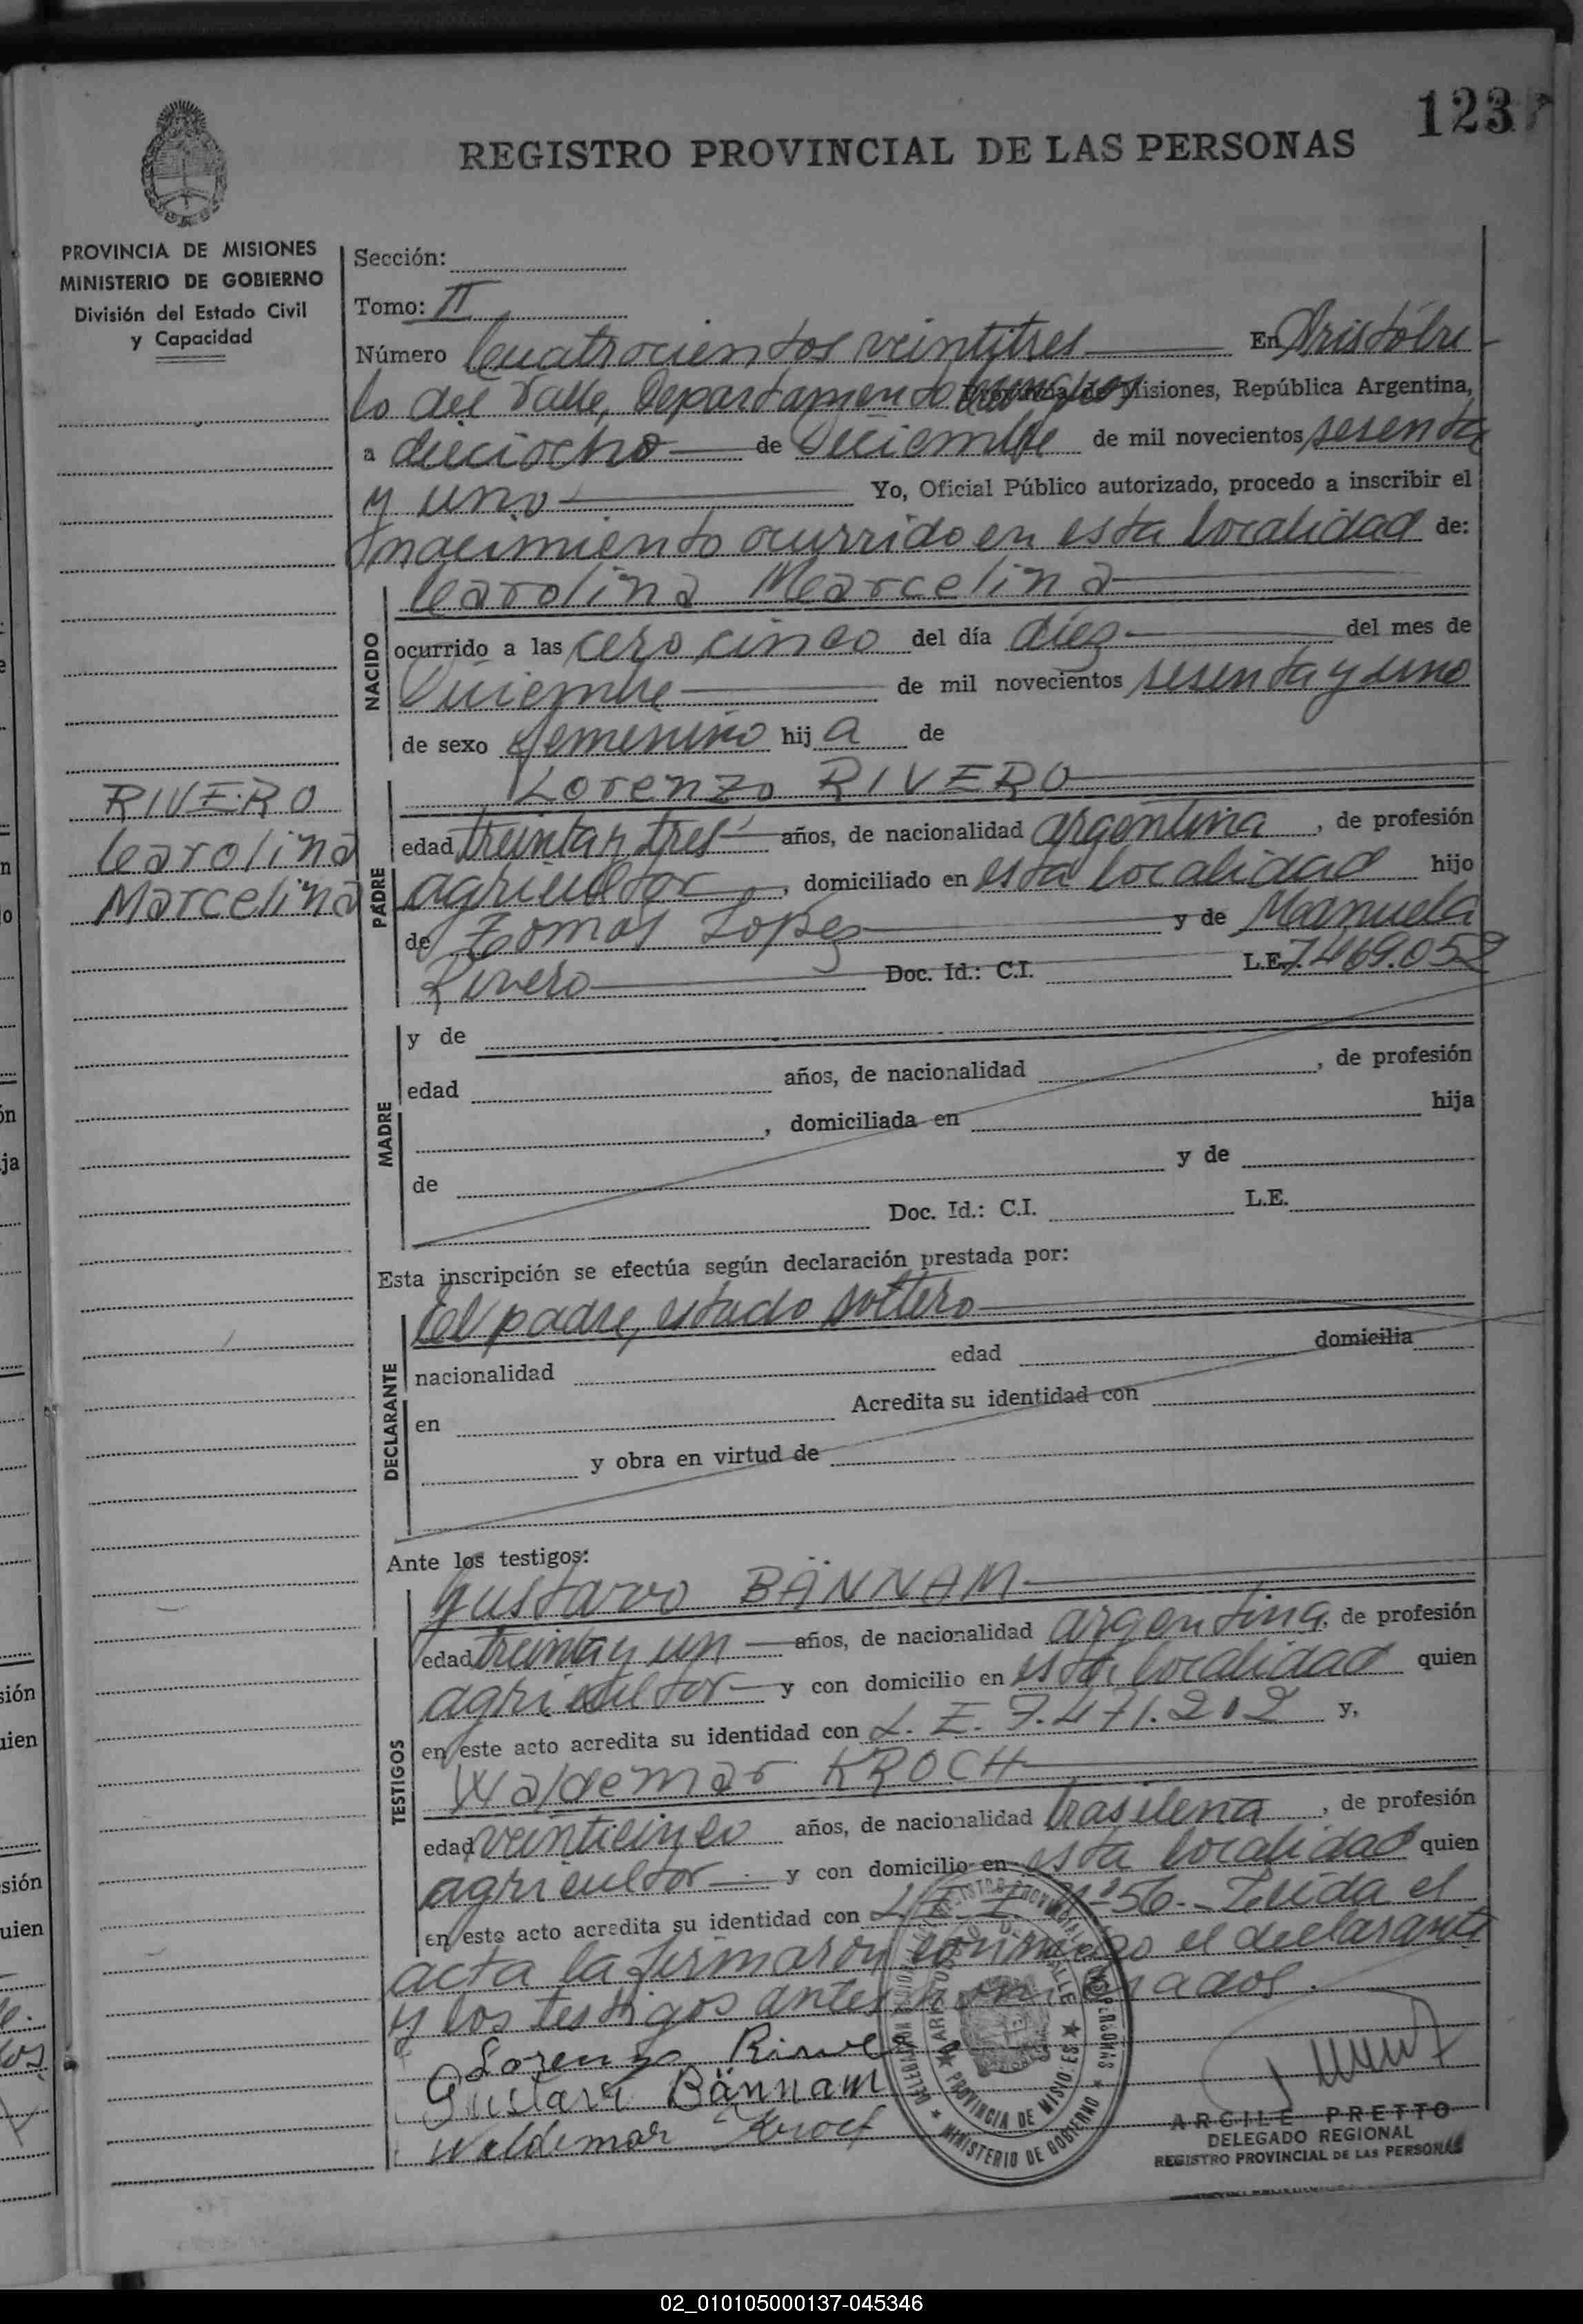 1237
REGISTRO PROVINCIAL DE LAS PERSONAS
PROVINCIA DE MISIONES
MINISTERIO DE GOBIERNO
División del Estado Civil
y Capacidad
Sección:
Tomo: II
Número Cuatrocientos veintitres En Aristóbu
lo del Valle, Departamento Provincia de Misiones, República Argentina,
a dieciocho de Diciembre de mil novecientos sesenta
y uno Yo, Oficial Público autorizado, procedo a inscribir el
nacimiento ocurrido en esta localidad de:
NACIDO
Carolina Marcelina
ocurrido a las cero cinco del día diez del mes de
Diciembre de mil novecientos sesenta y uno
de sexo femenino hij a de
RIVERO
Carolina
Marcelina
PADRE
Lorenzo RIVERO
edad treinta y tres años, de nacionalidad argentina, de profesión
agricultor, domiciliado en esta localidad hijo
de Tomas Lopez y de Manuela
Rivero Doc. Id.: C.I. L.E. 7.469.052
MADRE
y de
edad años, de nacionalidad , de profesión
, domiciliada en hija
de y de
Doc. Id.: C.I. L.E.
Esta inscripción se efectúa según declaración prestada por:
DECLARANTE
el padre, estado soltero
nacionalidad edad domicilia
en Acredita su identidad con
y obra en virtud de
Ante los testigos:
TESTIGOS
Gustavo BÄNNAM
edad treinta y un años, de nacionalidad argentina, de profesión
agricultor y con domicilio en esta localidad quien
en este acto acredita su identidad con L. E. 7.471.202 y,
Waldemar KROCH
edad veinticinco años, de nacionalidad brasilena, de profesión
agricultor y con domicilio en esta localidad quien
en este acto acredita su identidad con 56.- Leida el
acta la firmaron conmigo el declarante
y los testigos antes nominados.
Lorenzo Rivero
Gustavo Bännam
Waldemar Kroch
PROVINCIA DE MISIONES
MINISTERIO DE GOBIERNO
ARGILE PRETTO
DELEGADO REGIONAL
REGISTRO PROVINCIAL DE LAS PERSONAS
02_010105000137-045346